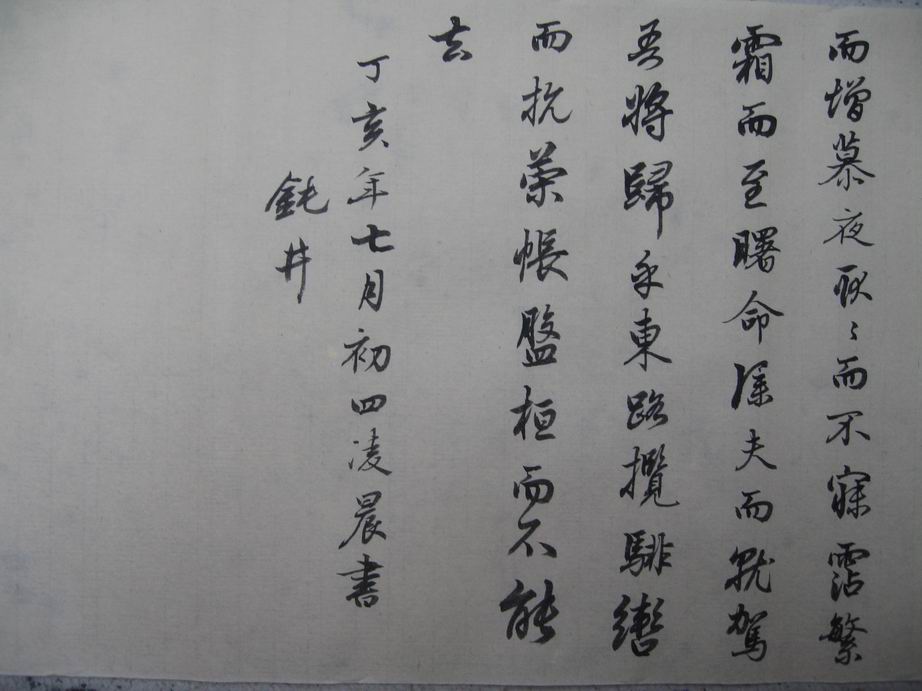 而增慕夜耿〻而不寐霑繁
霜而至曙命僕夫而就駕
吾將歸乎東路攬騑轡
而抗策帳盤桓而不能
去
丁亥年七月初四凌晨書
鈍井